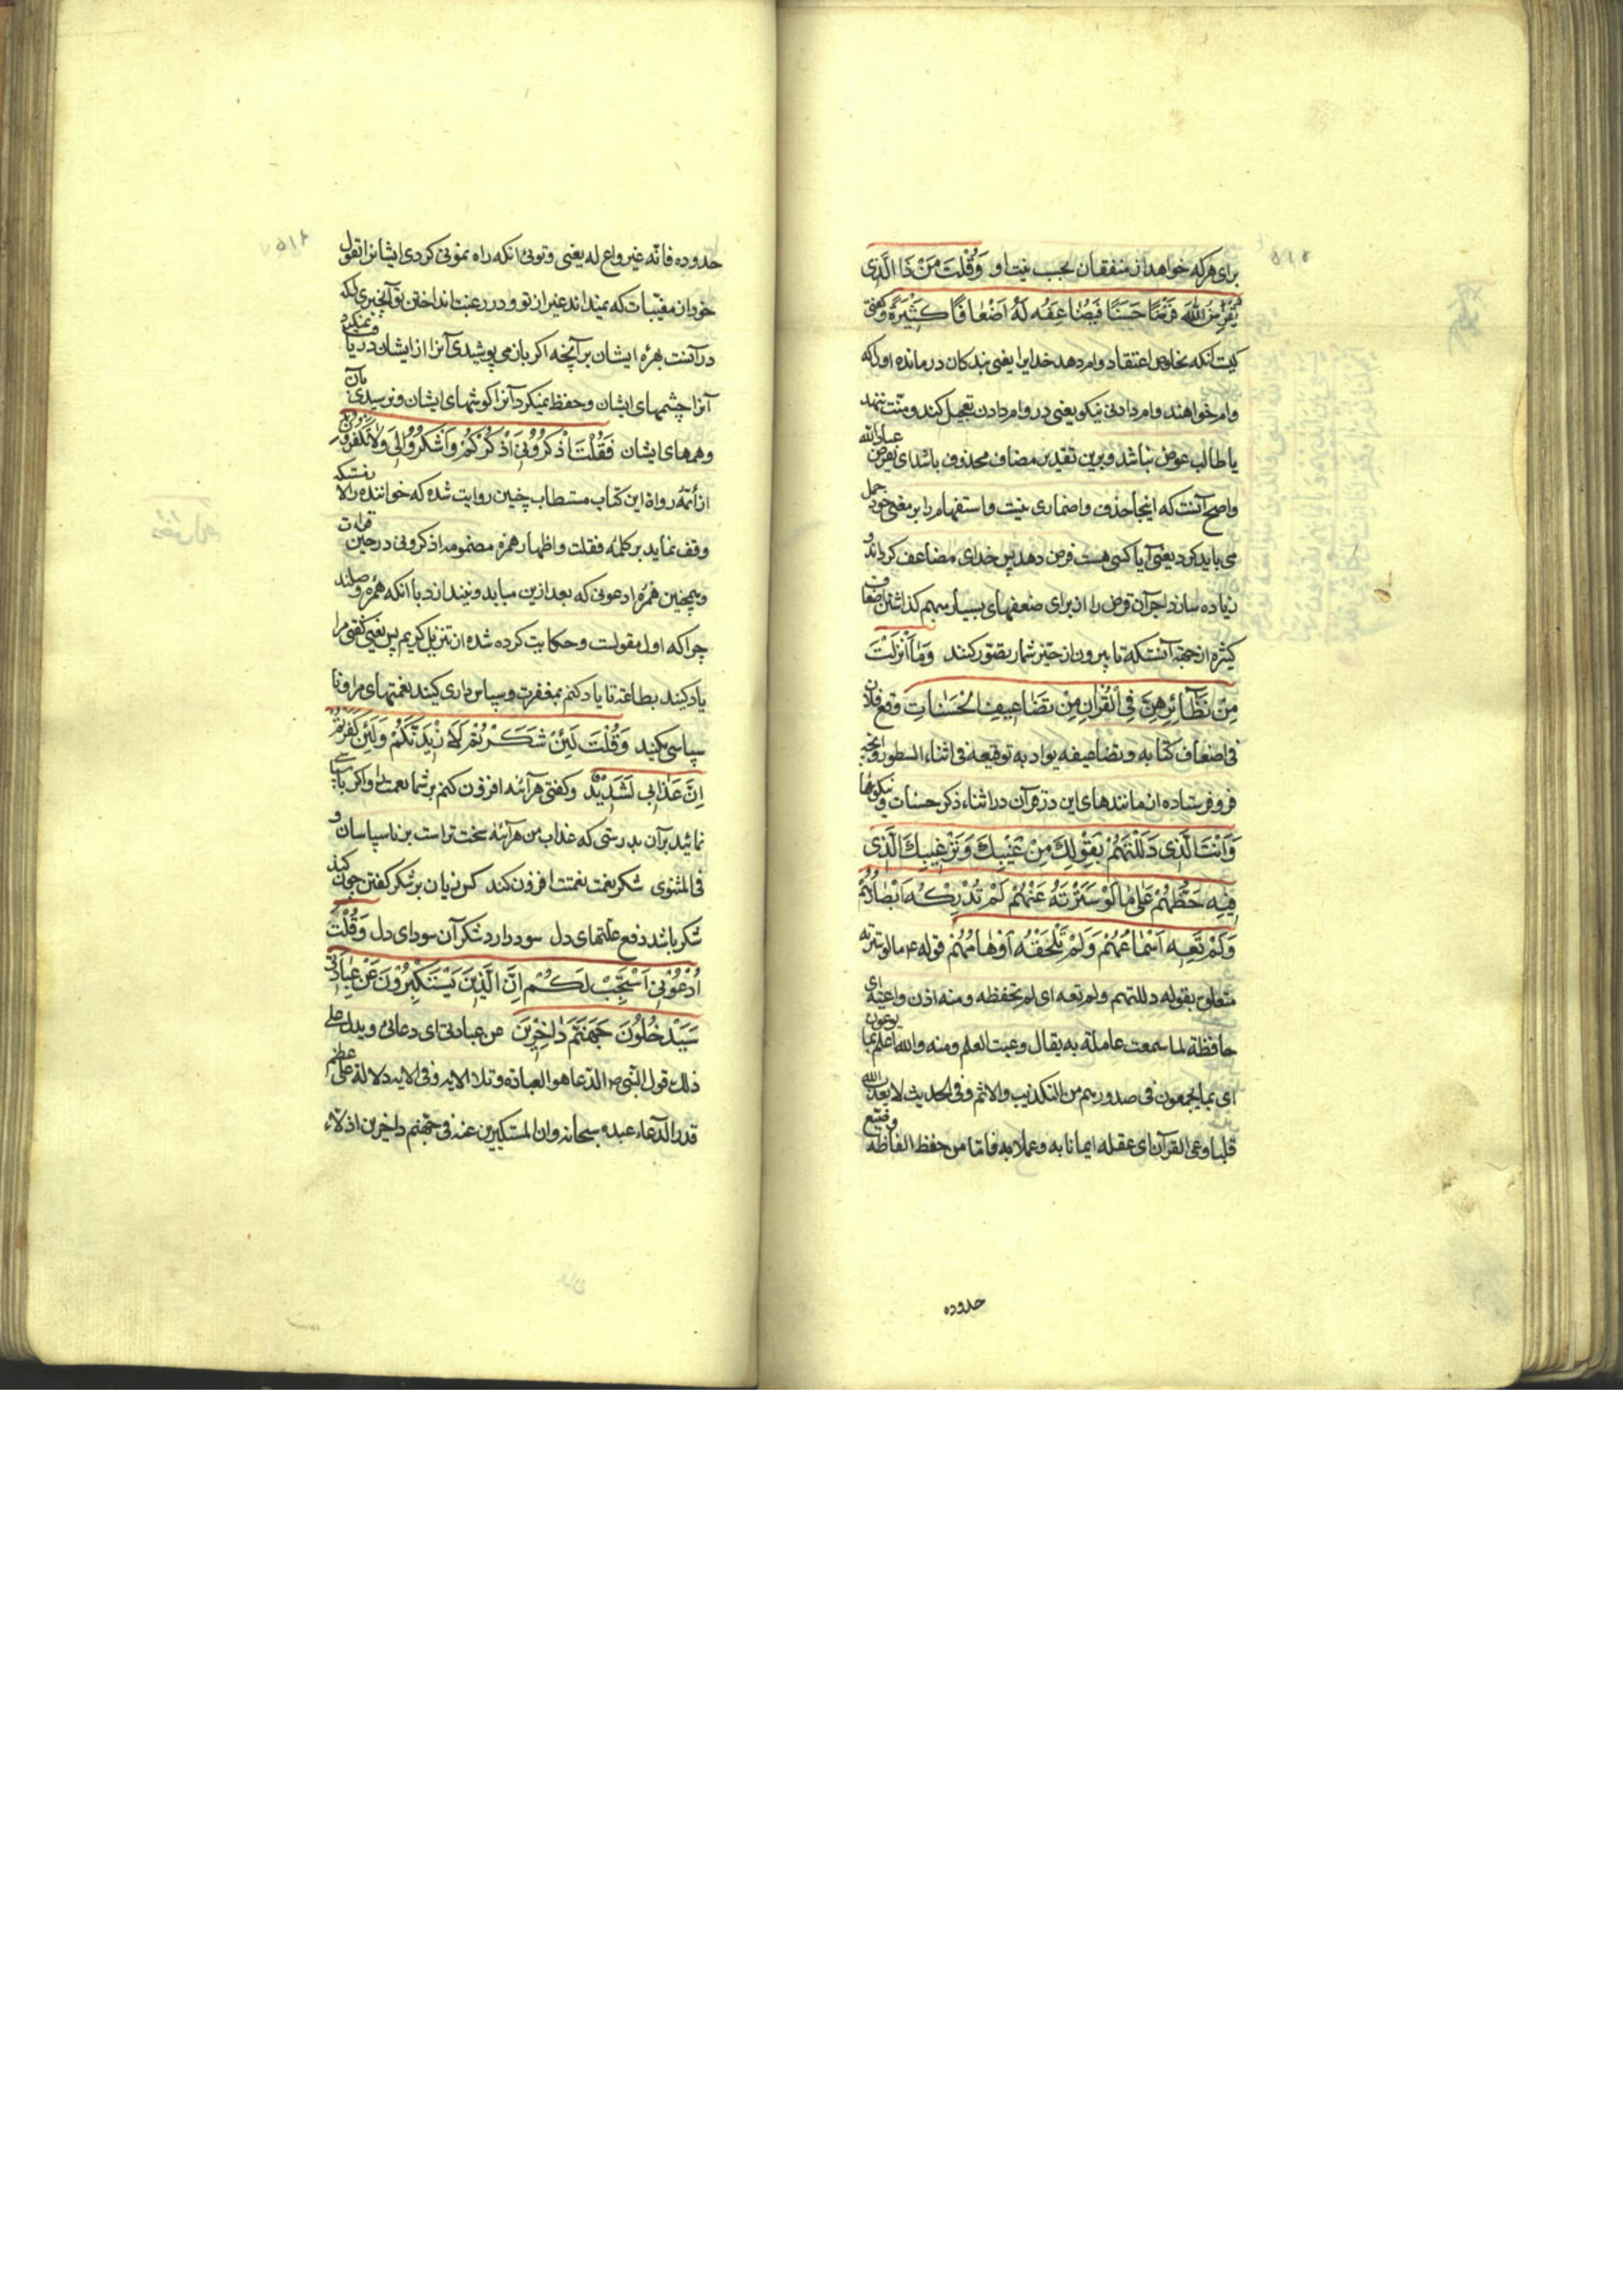 برای هرکه خواهد از منفقان بحسب نیت او وَقُلْتَ مَنْ ذَا الَّذِی
یُقْرِضُ اللهَ قَرْضًا حَسَنًا فَیُضَاعِفُهُ لَهُ اَضْعَافًا كَثِیرَةً وگفتی
کیست آنکه بخلوص اعتقاد وام دهد خدایرا یعنی بندکان درمانده اورا که
وام خواهند وام دادنی نیکو یعنی در وام دادن تعجیل کند و منت ننهد
یا طالب عوض نباشد و برین تقدیر مضاف محذوف باشد ای یقرض عباد الله
واصح آنست که اینجا حذف واضماری نیست واستفهام را بر معنی خود حمل
می باید کرد یعنی آیا کسی هست قرض دهد پس خدای مضاعف کرداند و
زیاده سازد اجر آن قرض را از برای ضعفهای بسیار مبهم کذاشتن اضعاف
کثیره از جهة آنست که تا بیرون از حیّز شمار تصوّر کنند وَمَا اَنْزَلْتَ
مِنْ نَظَآئِرِهِنَّ فِی الْقُرْاٰنِ مِنْ تَضَاعِیفِ الْحَسَنَاتِ وقع فلان
فی اضعاف کتابه وتضاعیفه یراد به توقیعه فی اثناء السطور وآنچه
فرو فرستاده از مانندهای این در قرآن در اثناء ذکر حسنات و نیکویها
وَاَنْتَ الَّذِی دَلَلْتَهُمْ بِقَوْلِكَ مِنْ غَیْبِكَ وَتَرْغِیبِكَ الَّذِی
فِیهِ حَظُّهُمْ عَلٰی مَا لَوْ سَتَرْتَهُ عَنْهُمْ لَمْ تُدْرِكْهُ اَبْصَارُهُمْ
وَلَمْ تَعِهِ اَسْمَاعُهُمْ وَلَمْ تَلْحَقْهُ اَوْهَامُهُمْ قوله ع ما لو سترته
متعلق بقوله دللتهم ولم تعه ای لم تحفظه ومنه اذن واعیة ای
حافظة لما سمعت عاملة به یقال وعیت العلم ومنه والله اعلم بما یوعون
ای بما یجمعون فی صدورهم من التکذیب والاثم وفی الحدیث لا یعذب الله
قلبا وعی القرآن ای عقله ایمانا به وعملا به فاما من حفظ الفاظه وضیع
حدوده
حدوده فانه غیر واع له یعنی وتوئی آنکه راه نمونی کردی ایشانرا بقول
خود از مغیّبات که نمیداند غیر از تو و در رغبت انداختن تو آنچیزی که
در آنست بهرهٔ ایشان بر آنچه اکر باز می پوشیدی آنرا از ایشان در نیافتی
آنرا چشمهای ایشان وحفظ نمیکرد آنرا کوشهای ایشان ونرسیدی بآن
وهمهای ایشان فَقُلْتَ اُذْكُرُونِی اَذْكُرْكُمْ وَاشْكُرُوا لِی وَلَا تَكْفُرُونِ
از أئمّه رواة این کتاب مستطاب چنین روایت شده که خواننده را
وقف نماید بر کلمهٔ فقلت واظهار همزه مضمومه اذکرونی در حین قراءت
وهمچنین همزهٔ ادعونی که بعد ازین میاید ونیندازد با آنکه همزه وصلند
چرا که اول مقولست وحکایت کرده شده از تنزیل کریم پس یعنی گفتی مرا
یاد کنید بطاعت تا یاد کنم بمغفرت وسپاس داری کنید نعمتهای مرا ونا
سپاسی مکنید وَقُلْتَ لَئِنْ شَكَرْتُمْ لَاَزِیدَنَّكُمْ وَلَئِنْ كَفَرْتُمْ
اِنَّ عَذَابِی لَشَدِیدٌ وگفتی هرآینه افزون کنم بر شما نعمت را واکر ناسپاسی
نمائید برآن بدرستی که عذاب من هرآینه سخت تر است بر ناسپاسان و
فی المثنوی شکر نعمت نعمتت افزون کند کس زیان بر شکر گفتن چون کند
شکر باشد دفع علتهای دل سود دارد شکر آن سودای دل وَقُلْتَ
اُدْعُونِی اَسْتَجِبْ لَكُمْ اِنَّ الَّذِینَ یَسْتَكْبِرُونَ عَنْ عِبَادَتِی
سَیَدْخُلُونَ جَهَنَّمَ دَاخِرِینَ عن عبادتی ای دعائی ویدل علی
ذلک قول النبی ص الدعا هو العبادة وتلا الایه وفی الایه دلالة علی عظم
قدر الدعاء عنده سبحانه وان المستکبرین عنه فی جهنم داخرین اذلاء